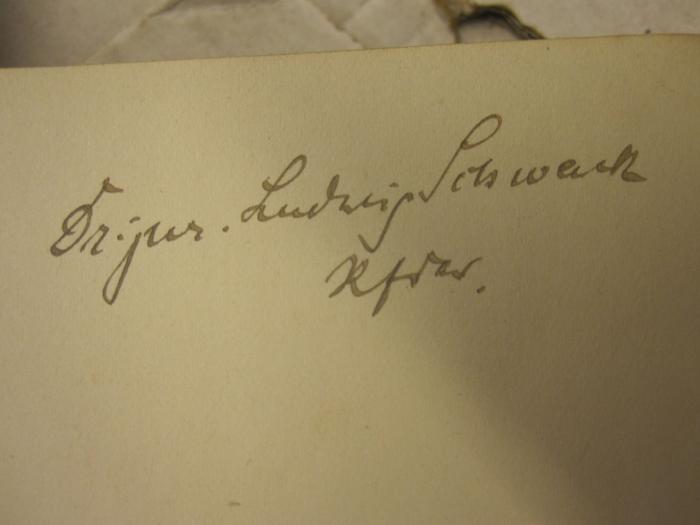 Dr. jur. Ludwig Schwenk
Rfdar.